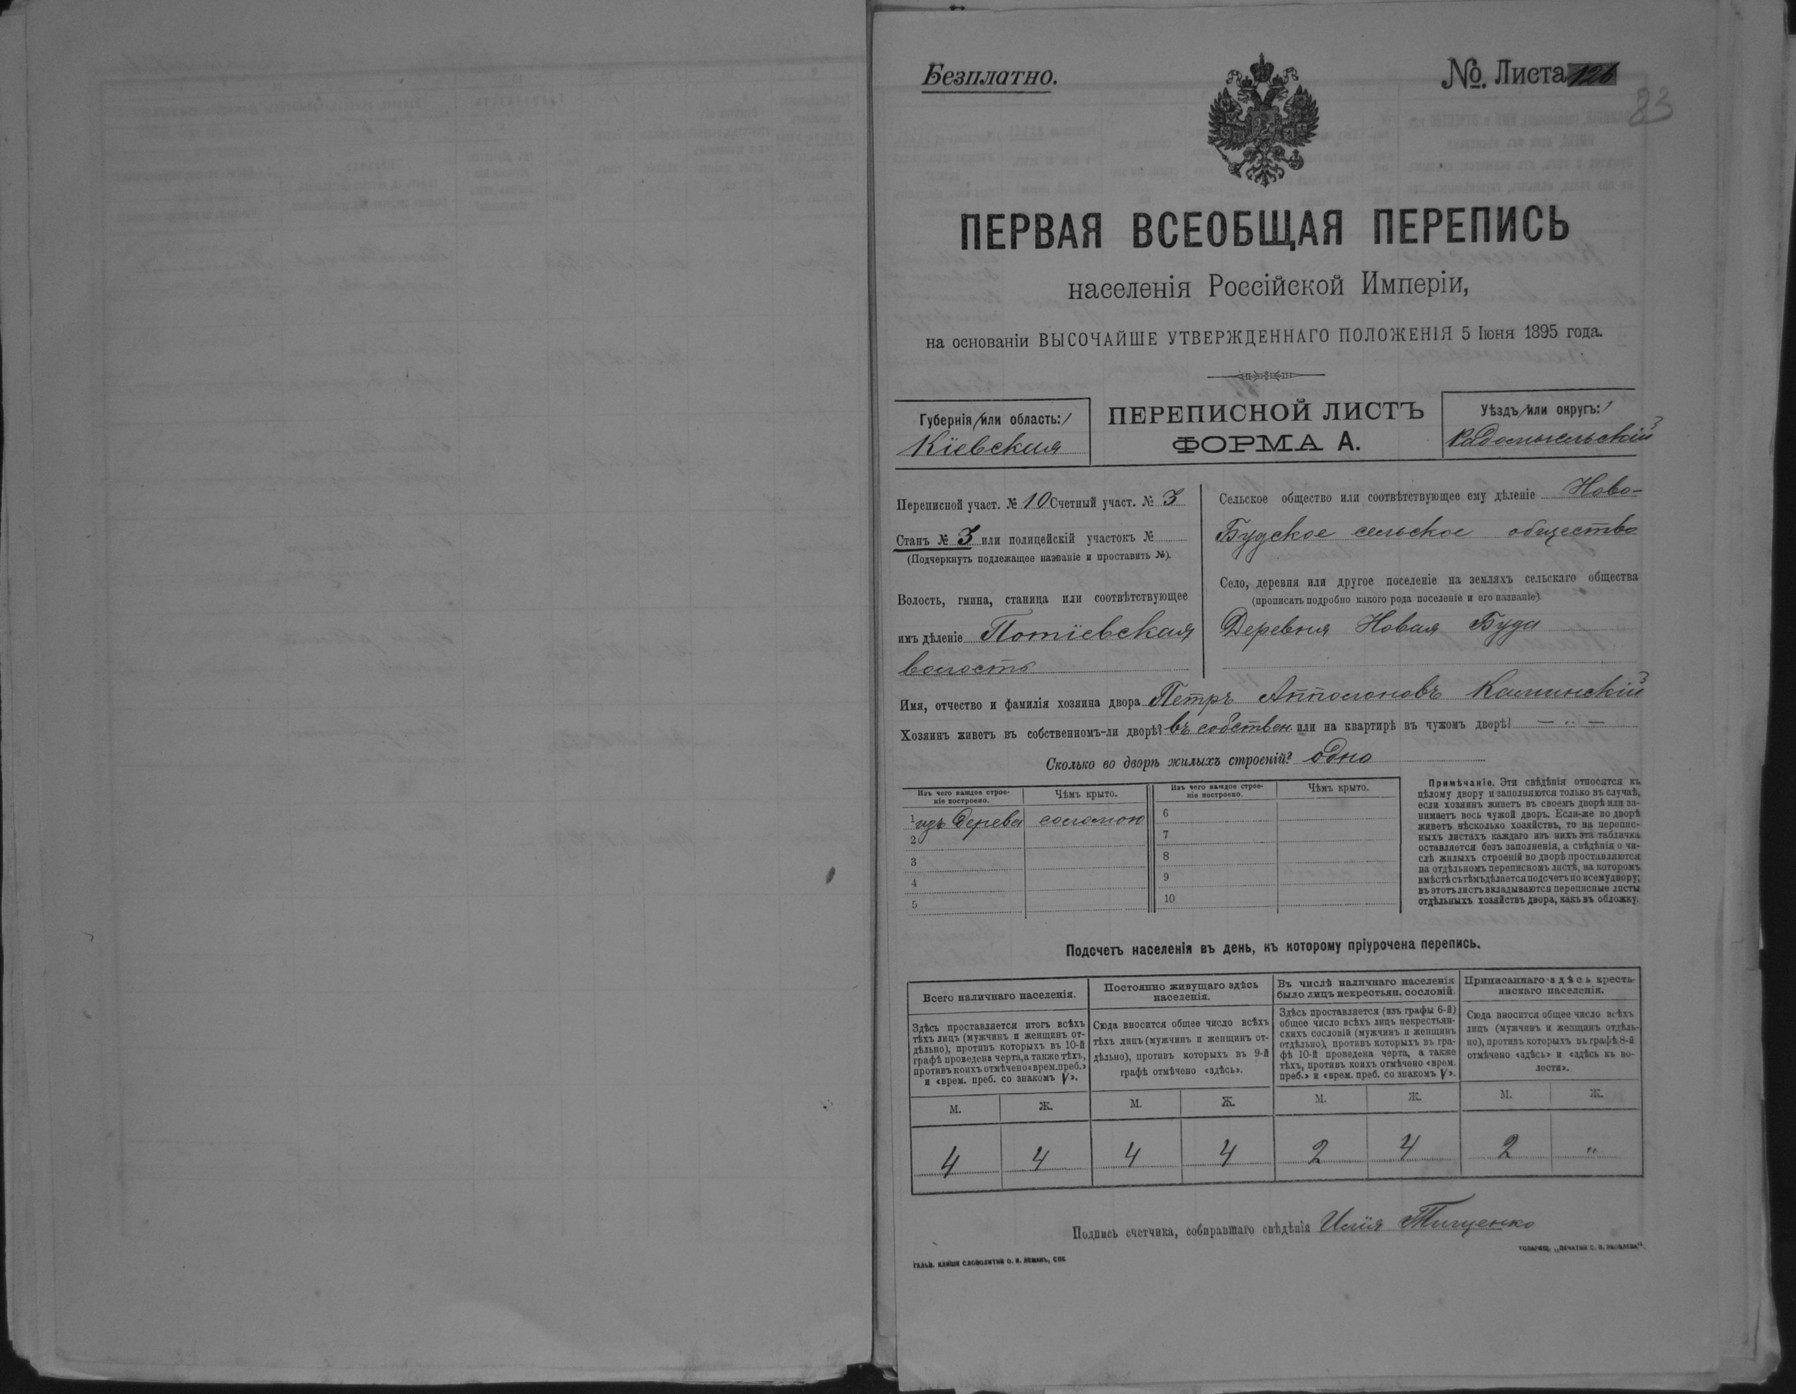 Безплатно.
№ Листа 126
83
ПЕРВАЯ ВСЕОБЩАЯ ПЕРЕПИСЬ
населенія Россійской Имперіи,
на основаніи ВЫСОЧАЙШЕ УТВЕРЖДЕННАГО ПОЛОЖЕНІЯ 5 Іюня 1895 года.
Губернія /или область:/
Кіевская
ПЕРЕПИСНОЙ ЛИСТЪ
ФОРМА А.
Уѣздъ /или округъ:/
Радомысльскій
Переписной участ. № 10 Счетный участ. № 3
Станъ № 3 или полицейскій участокъ №
(Подчеркнуть подлежащее названіе и проставить №).
Волость, гмина, станица или соотвѣтствующее
имъ дѣленіе Потіевская
волость
Сельское общество или соотвѣтствующее ему дѣленіе Ново-
Будское сельское общество
Село, деревня или другое поселеніе на земляхъ сельскаго общества
(прописать подробно какого рода поселеніе и его названіе).
Деревня Новая Буда
Имя, отчество и фамилія хозяина двора Петръ Апполоновъ Калинскій
Хозяинъ живетъ въ собственномъ-ли дворѣ? въ собствен или на квартирѣ въ чужомъ дворѣ? — „ —
Сколько во дворѣ жилыхъ строеній? одно
Изъ чего каждое строе-
ніе построено.
Чѣмъ крыто.
Изъ чего каждое строе-
ніе построено.
Чѣмъ крыто.
1 изъ дерева соломою
2
3
4
5
6
7
8
9
10
Примѣчаніе. Эти свѣдѣнія относятся къ
цѣлому двору и заполняются только въ случаѣ,
если хозяинъ живетъ въ своемъ дворѣ или за-
нимаетъ весь чужой дворъ. Если-же во дворѣ
живетъ нѣсколько хозяйствъ, то на перепис-
ныхъ листахъ каждаго изъ нихъ эта табличка
оставляется безъ заполненія, а свѣдѣнія о чи-
слѣ жилыхъ строеній во дворѣ проставляются
на отдѣльномъ переписномъ листѣ, на которомъ
вмѣстѣ съ тѣмъ дѣлается подсчетъ по всему двору;
въ этотъ листъ вкладываются переписные листы
отдѣльныхъ хозяйствъ двора, какъ въ обложку.
Подсчетъ населенія въ день, къ которому пріурочена перепись.
Всего наличнаго населенія.
Здѣсь проставляется итогъ всѣхъ
тѣхъ лицъ (мужчинъ и женщинъ от-
дѣльно), противъ которыхъ въ 10-й
графѣ проведена черта, а также тѣхъ,
противъ коихъ отмѣчено «врем. преб.»
и «врем. преб. со знакомъ V».
Постоянно живущаго здѣсь
населенія.
Сюда вносится общее число всѣхъ
тѣхъ лицъ (мужчинъ и женщинъ от-
дѣльно), противъ которыхъ въ 9-й
графѣ отмѣчено «здѣсь».
Въ числѣ наличнаго населенія
было лицъ некрестьян. сословій.
Здѣсь проставляется (изъ графы 6-й)
общее число всѣхъ лицъ некрестьян-
скихъ сословій (мужчинъ и женщинъ
отдѣльно), противъ которыхъ въ гра-
фѣ 10-й проведена черта, а также
тѣхъ, противъ коихъ отмѣчено «врем.
преб.» и «врем. преб. со знакомъ V».
Приписаннаго здѣсь кресть-
янскаго населенія.
Сюда вносится общее число всѣхъ
лицъ (мужчинъ и женщинъ отдѣль-
но), противъ которыхъ въ графѣ 8-й
отмѣчено «здѣсь» и «здѣсь въ во-
лости».
М. Ж. М. Ж. М. Ж. М. Ж.
4 4 4 4 2 4 2 „
Подпись счетчика, собиравшаго свѣдѣнія Илія Тищенко
ГАЛЬВ. КЛИШЕ СЛОВОЛИТНИ О. И. ЛЕМАНЪ, СПБ
ТОВАРИЩ. „ПЕЧАТНЯ С. П. ЯКОВЛЕВА".